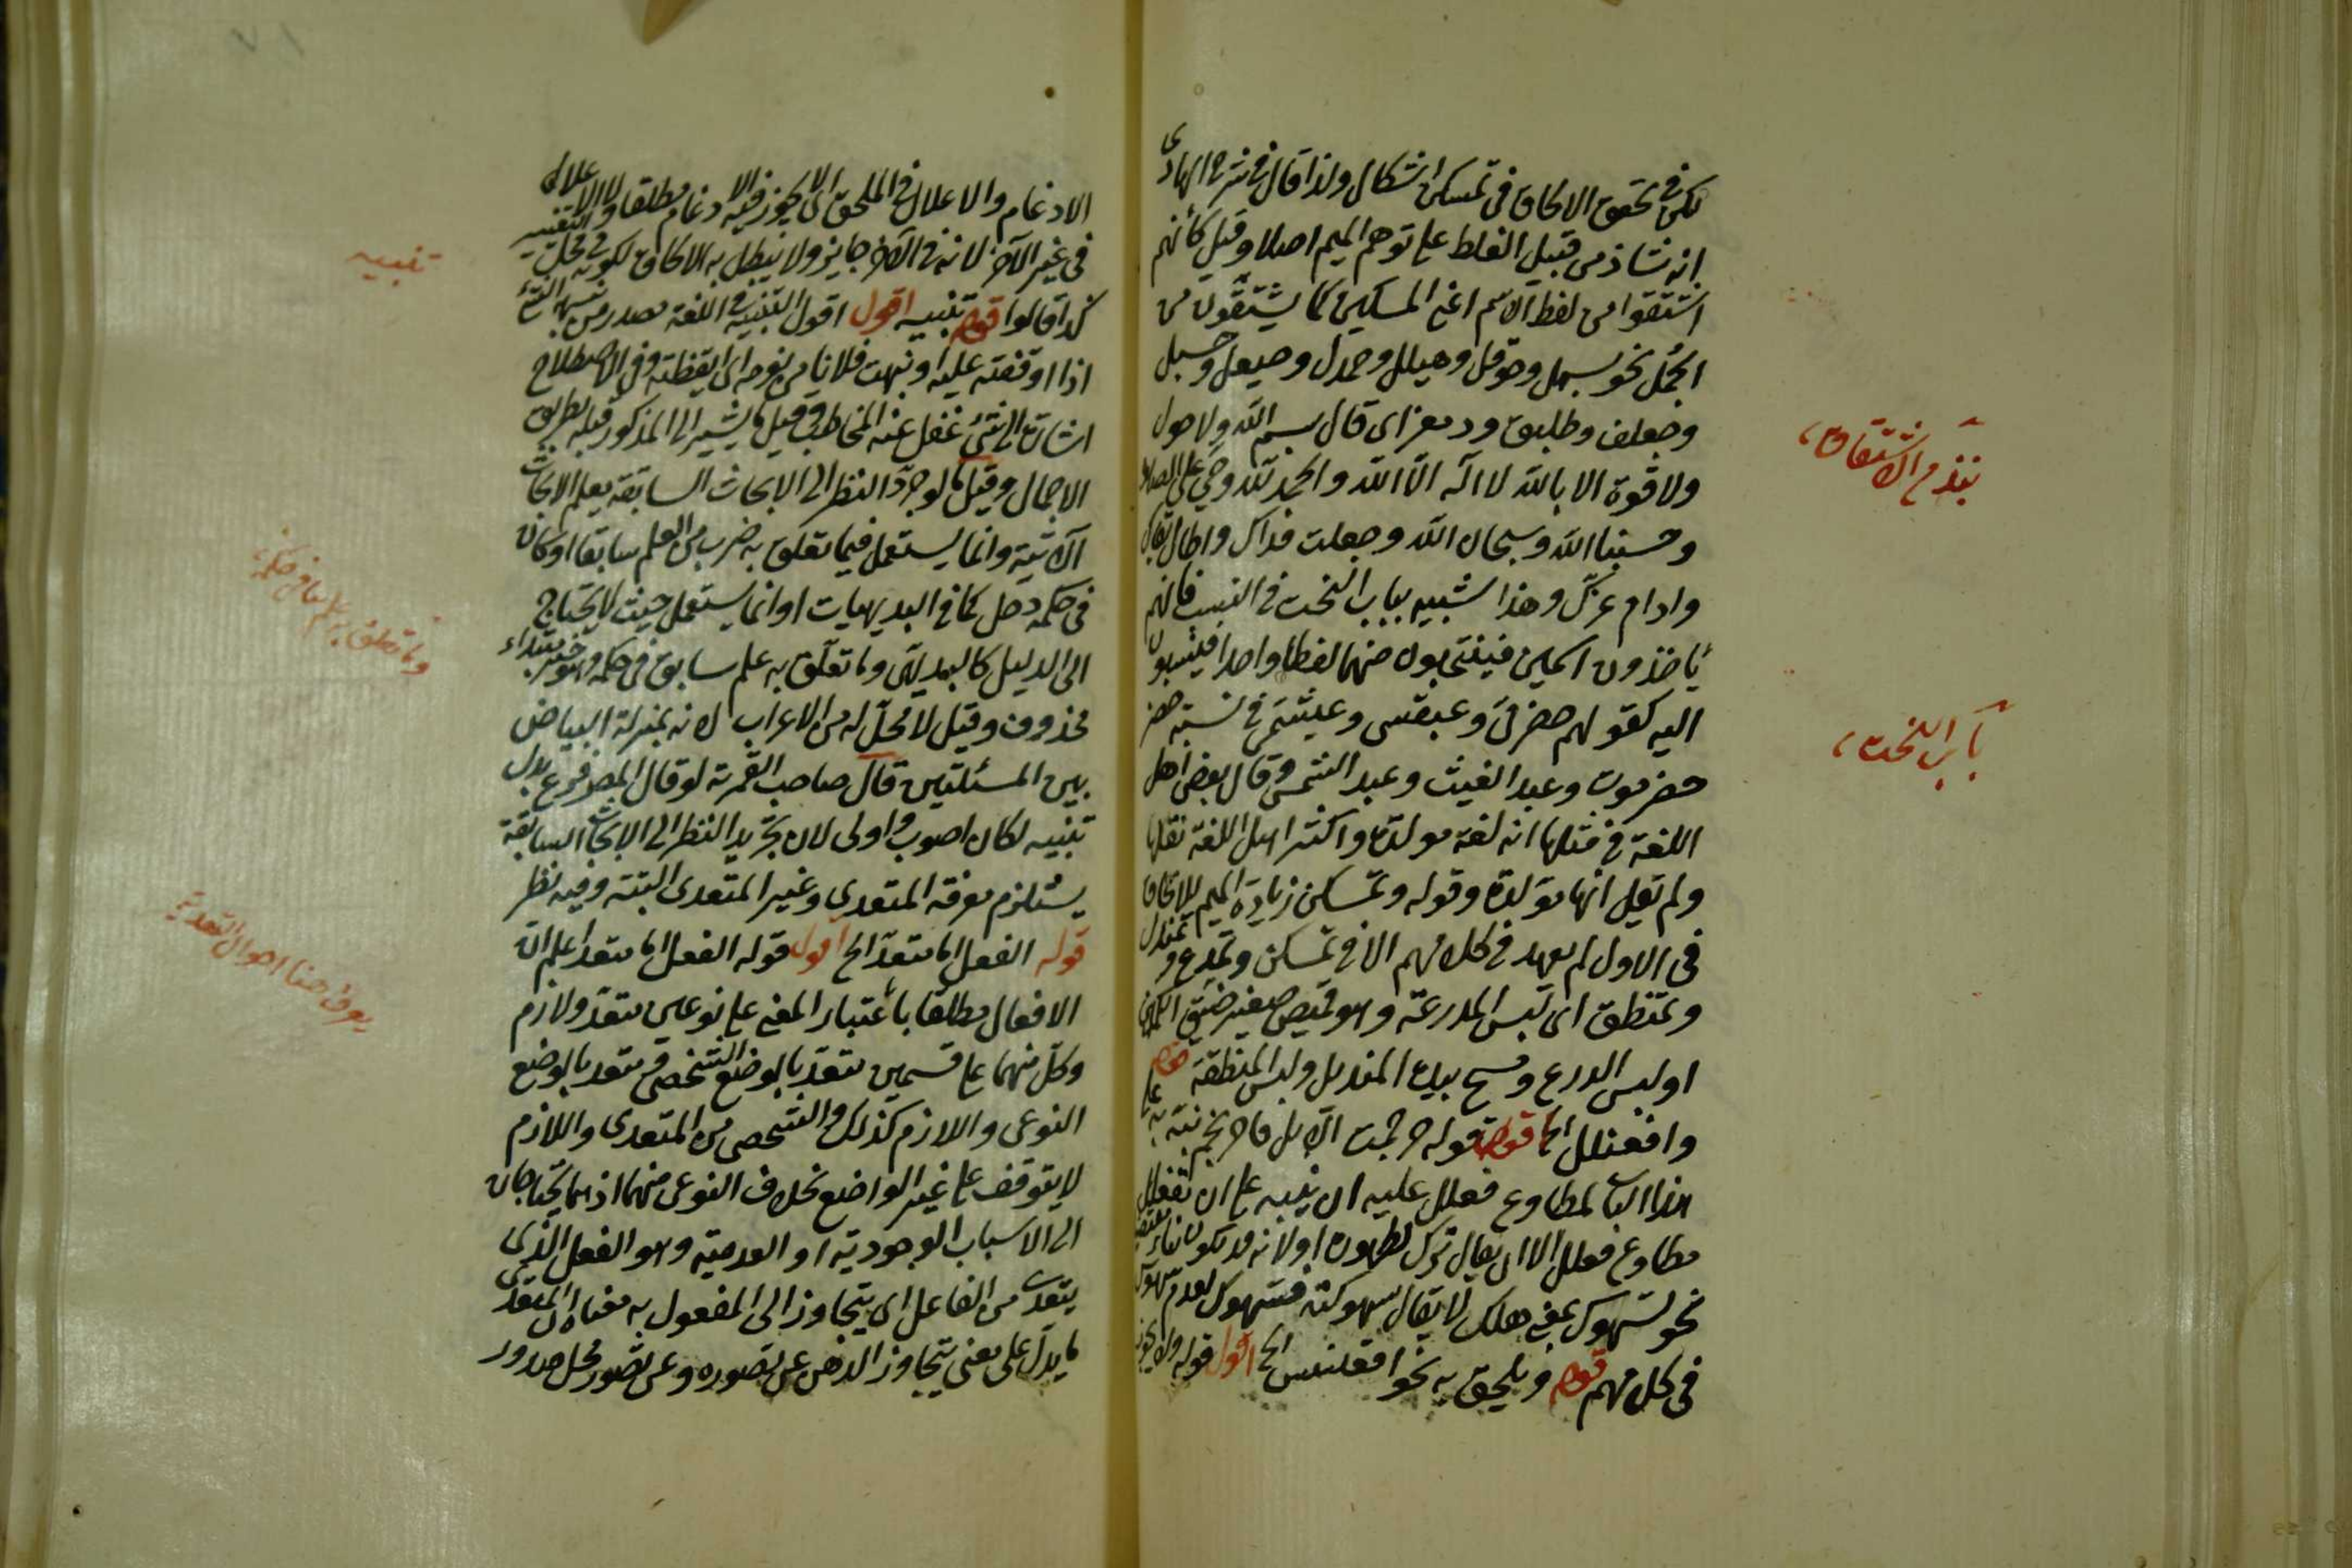 لكن في تحقق الالحاق في تمسكن اشكال ولذا قال في شرح الهادى
انه شاذ من قبيل الغلط على توهم الميم اصلا وقيل كأنهم
اشتقوا من لفظ الاسم اعنى المسكين كما يشتقون من
الجمل نحو بسمل وحوقل وهيلل وحمدل وحيعل وحسبل
وجعلف وطلبق ودمعز اى قال بسم الله ولا حول
ولا قوة الا بالله لا اله الا الله والحمد لله وحي على الصلاة
وحسبنا الله وسبحان الله وجعلت فداك واطال بقاك
وادام عزك وهذا شبيه بباب النحت في النسب فانهم
يأخذون اسمين فينتحبون منهما لفظا واحدا فينسبون
اليه كقولهم حضرمى وعبقسى وعبشمى في نسبته
حضرموت وعبد الغيث وعبد الشمس وقال بعض اهل
اللغة في مثلها انه لغة مولدة واكثر اهل اللغة نقلها
ولم تقل انها مولدة وقوله وتمسكن زيادة الميم للالحاق
في الاول لم يعهد في كلامهم الا في تمسكن وتمدرع وتمندل
وتمنطق اى لبس المدرعة وهو قميص صغير ضيق الكمين
او لبس الدرع ومسح بيده المنديل ولبس المنطقة قوله
وافعنلل الخ اقول قوله حرجمت الابل فاحرنجمت
هذا الباب لمطاوع فعلل عليه ان ينبه على ان تفعلل
مطاوع فعلل الا ان يقال ترك لظهوره او لانه قد يكون
نحو تسهوك بمعنى هلك لا يقال سهوكته فتسهوك لعدم سهوك
في كلامهم قوله ويلحق به نحو اقعنسس الخ اقول قوله ولا يجوز
بنذم الاشتقاق
باب النحت
الادغام والاعلال في الملحق اى لا يجوز فيه الادغام مطلقا ولا الاعلال
في غير الآخر لانه في الآخر جايز ولا يبطل به الالحاق لكونه في محل التغيير
كذا قالوا قوله تنبيه اقول اقول التنبيه في اللغة مصدر من
اذا اوقفته عليه او نبهت فلانا من نومه اى ايقظته وفي الاصطلاح
اشارة الى شئ غفل عنه المخاطب وقيل ما يشير الى المذكور قبله بطريق
الاجمال وقيل ما لو جرد النظر الى الابحاث السابقة يعلم الابحاث
الآتية وانما يستعمل فيما تعلق به ضرب من العلم سابقا او كان
في حكمه دخل كما في البديهيات او انما يستعمل حيث لا يحتاج
الى الدليل كالبديهى وما تعلق به علم سابق في حكمه وهو خبر مبتداء
محذوف وقيل لا محل له من الاعراب لانه بمنزلة البياض
بين المسئلتين قال صاحب الثمرة لو قال المص فرع بدل
تنبيه لكان اصوب واولى لان تجريد النظر الى الابحاث السابقة
يستلزم معرفة المتعدى وغير المتعدى البتة وفيه نظر
قوله الفعل اما متعد الخ اقول قوله الفعل اما متعد اعلم ان
الافعال مطلقا بأعتبار المعنى على نوعين متعد ولازم
وكل منهما على قسمين متعد بالوضع الشخصى ومتعد بالوضع
النوعى واللازم كذلك والشخصى من المتعدى واللازم
لا يتوقف على غير الواضع بخلاف النوعى منهما اذ هما يحتاجان
الى الاسباب الوجودية او العدمية وهو الفعل الذى
يتعدى من الفاعل اى يتجاوز الى المفعول به معناه ان المتعدى
ما يدل على معنى يتجاوز الذهن عن تصوره وعن تصور محل صدور
تنبيه
وما تعلق به علم سابق في حكمه
يعرف هنا احوال التعدية